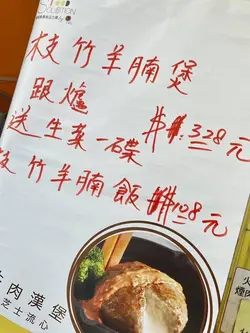 SOLUTION
枝竹羊腩煲
跟爐 $328元
送生菜一碟
枝竹羊腩飯 $128元
肉漢堡
芝士流心
火
煙肉